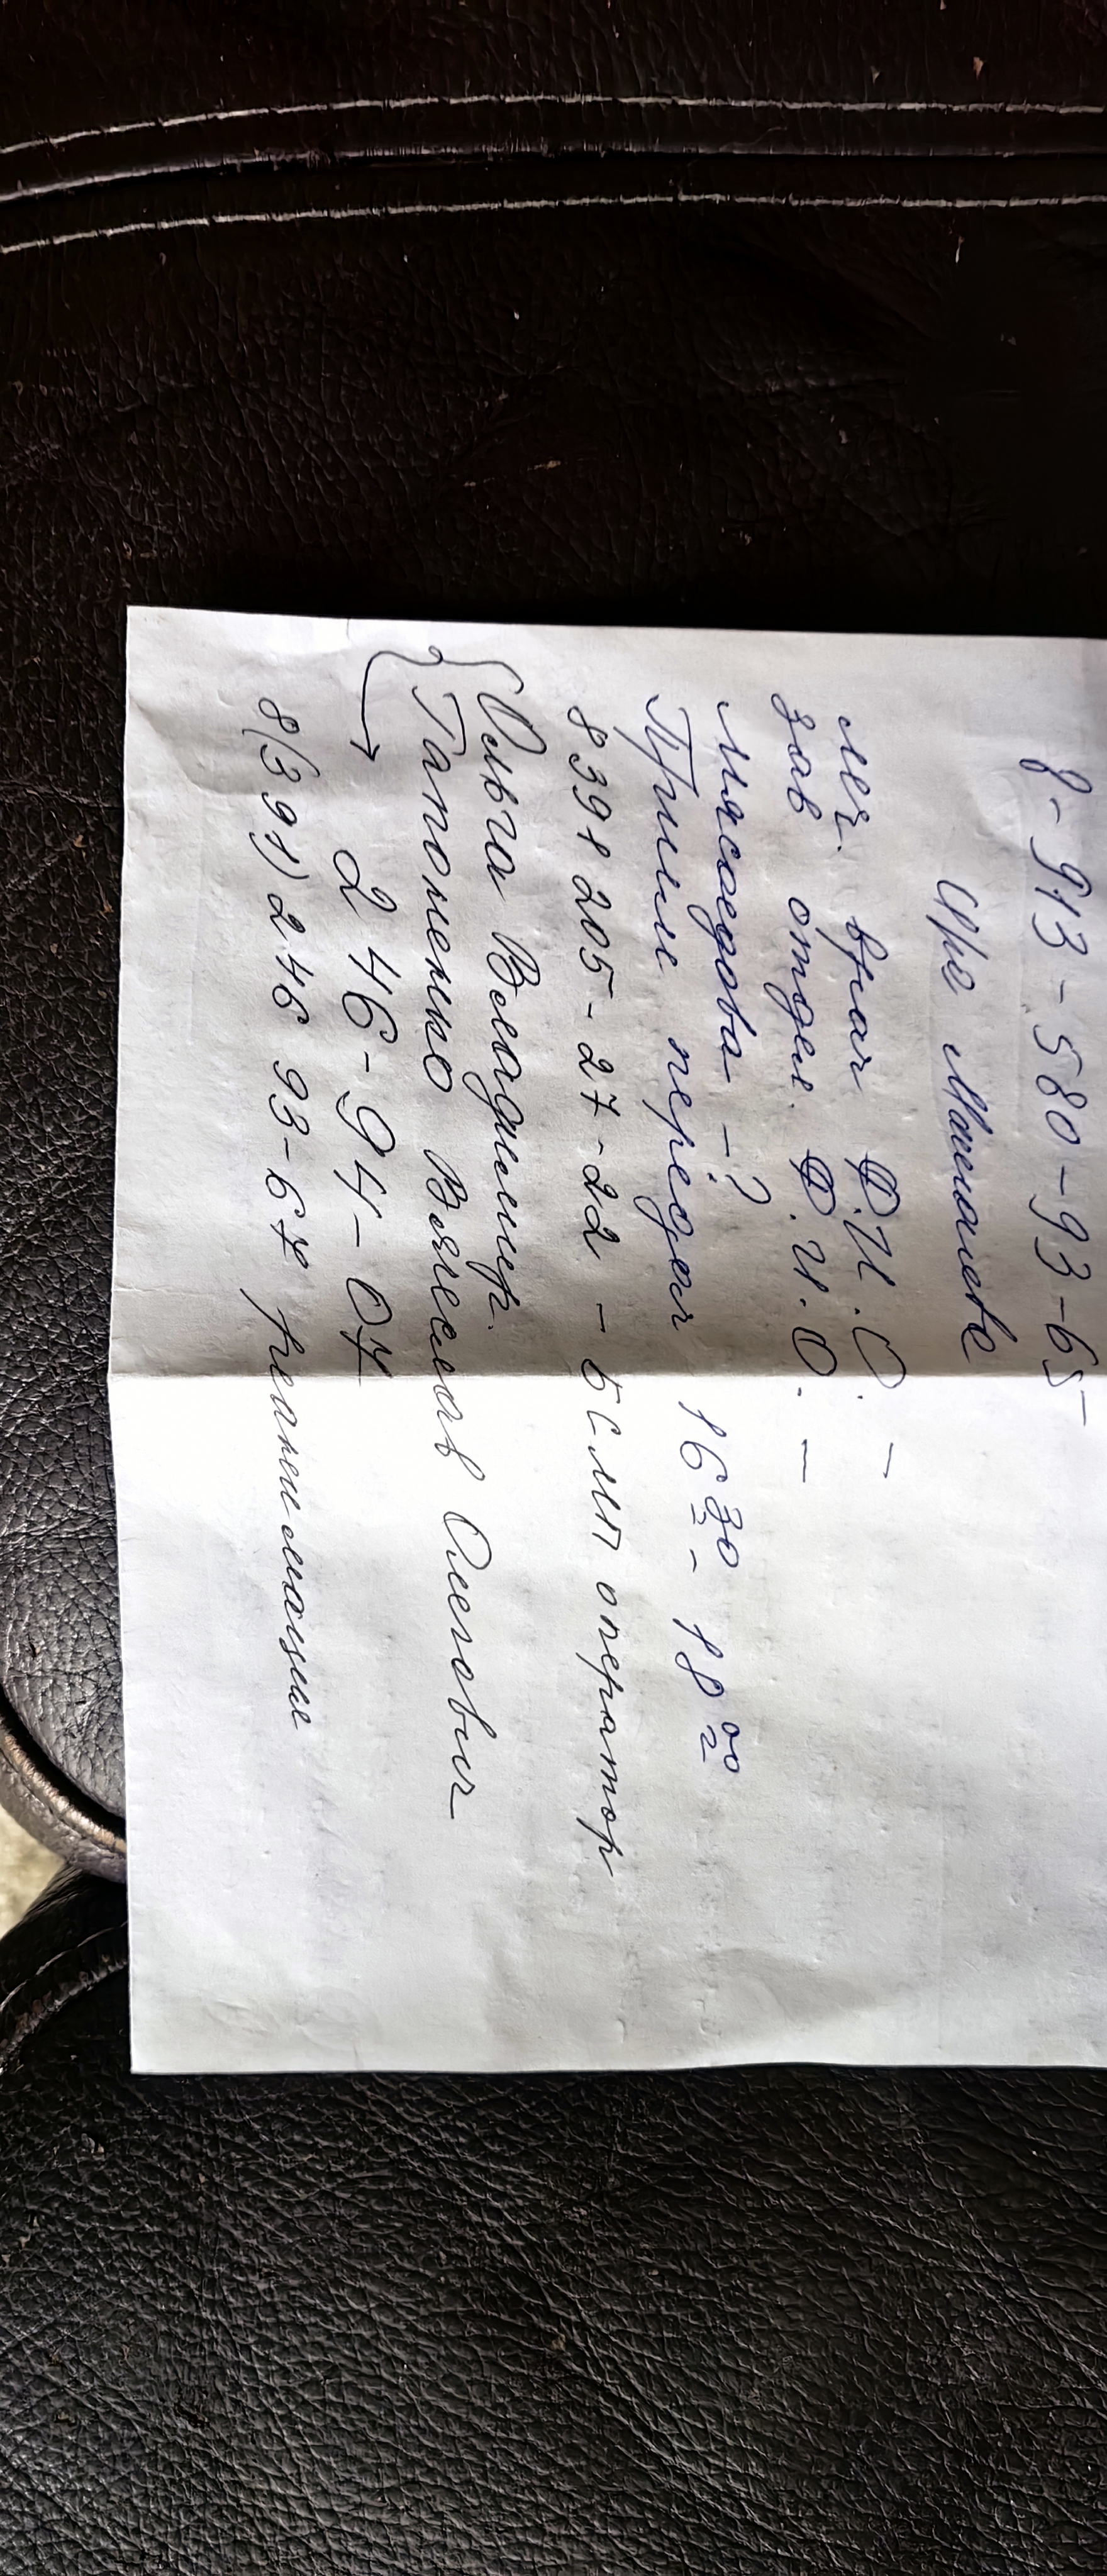 8-913-580-93-65
Ира Мамонова
леч. врач Ф.И.О. —
зав отдел. Ф.И.О. —
Мясоедова - ?
Прием передач 16 30 - 18 00
8 391 205-27-22 - БСМП оператор
Ольга Владимир.
Гапоненко Вячеслав Олегович
2 46-94-07
8(391) 246 93-67 реанимация